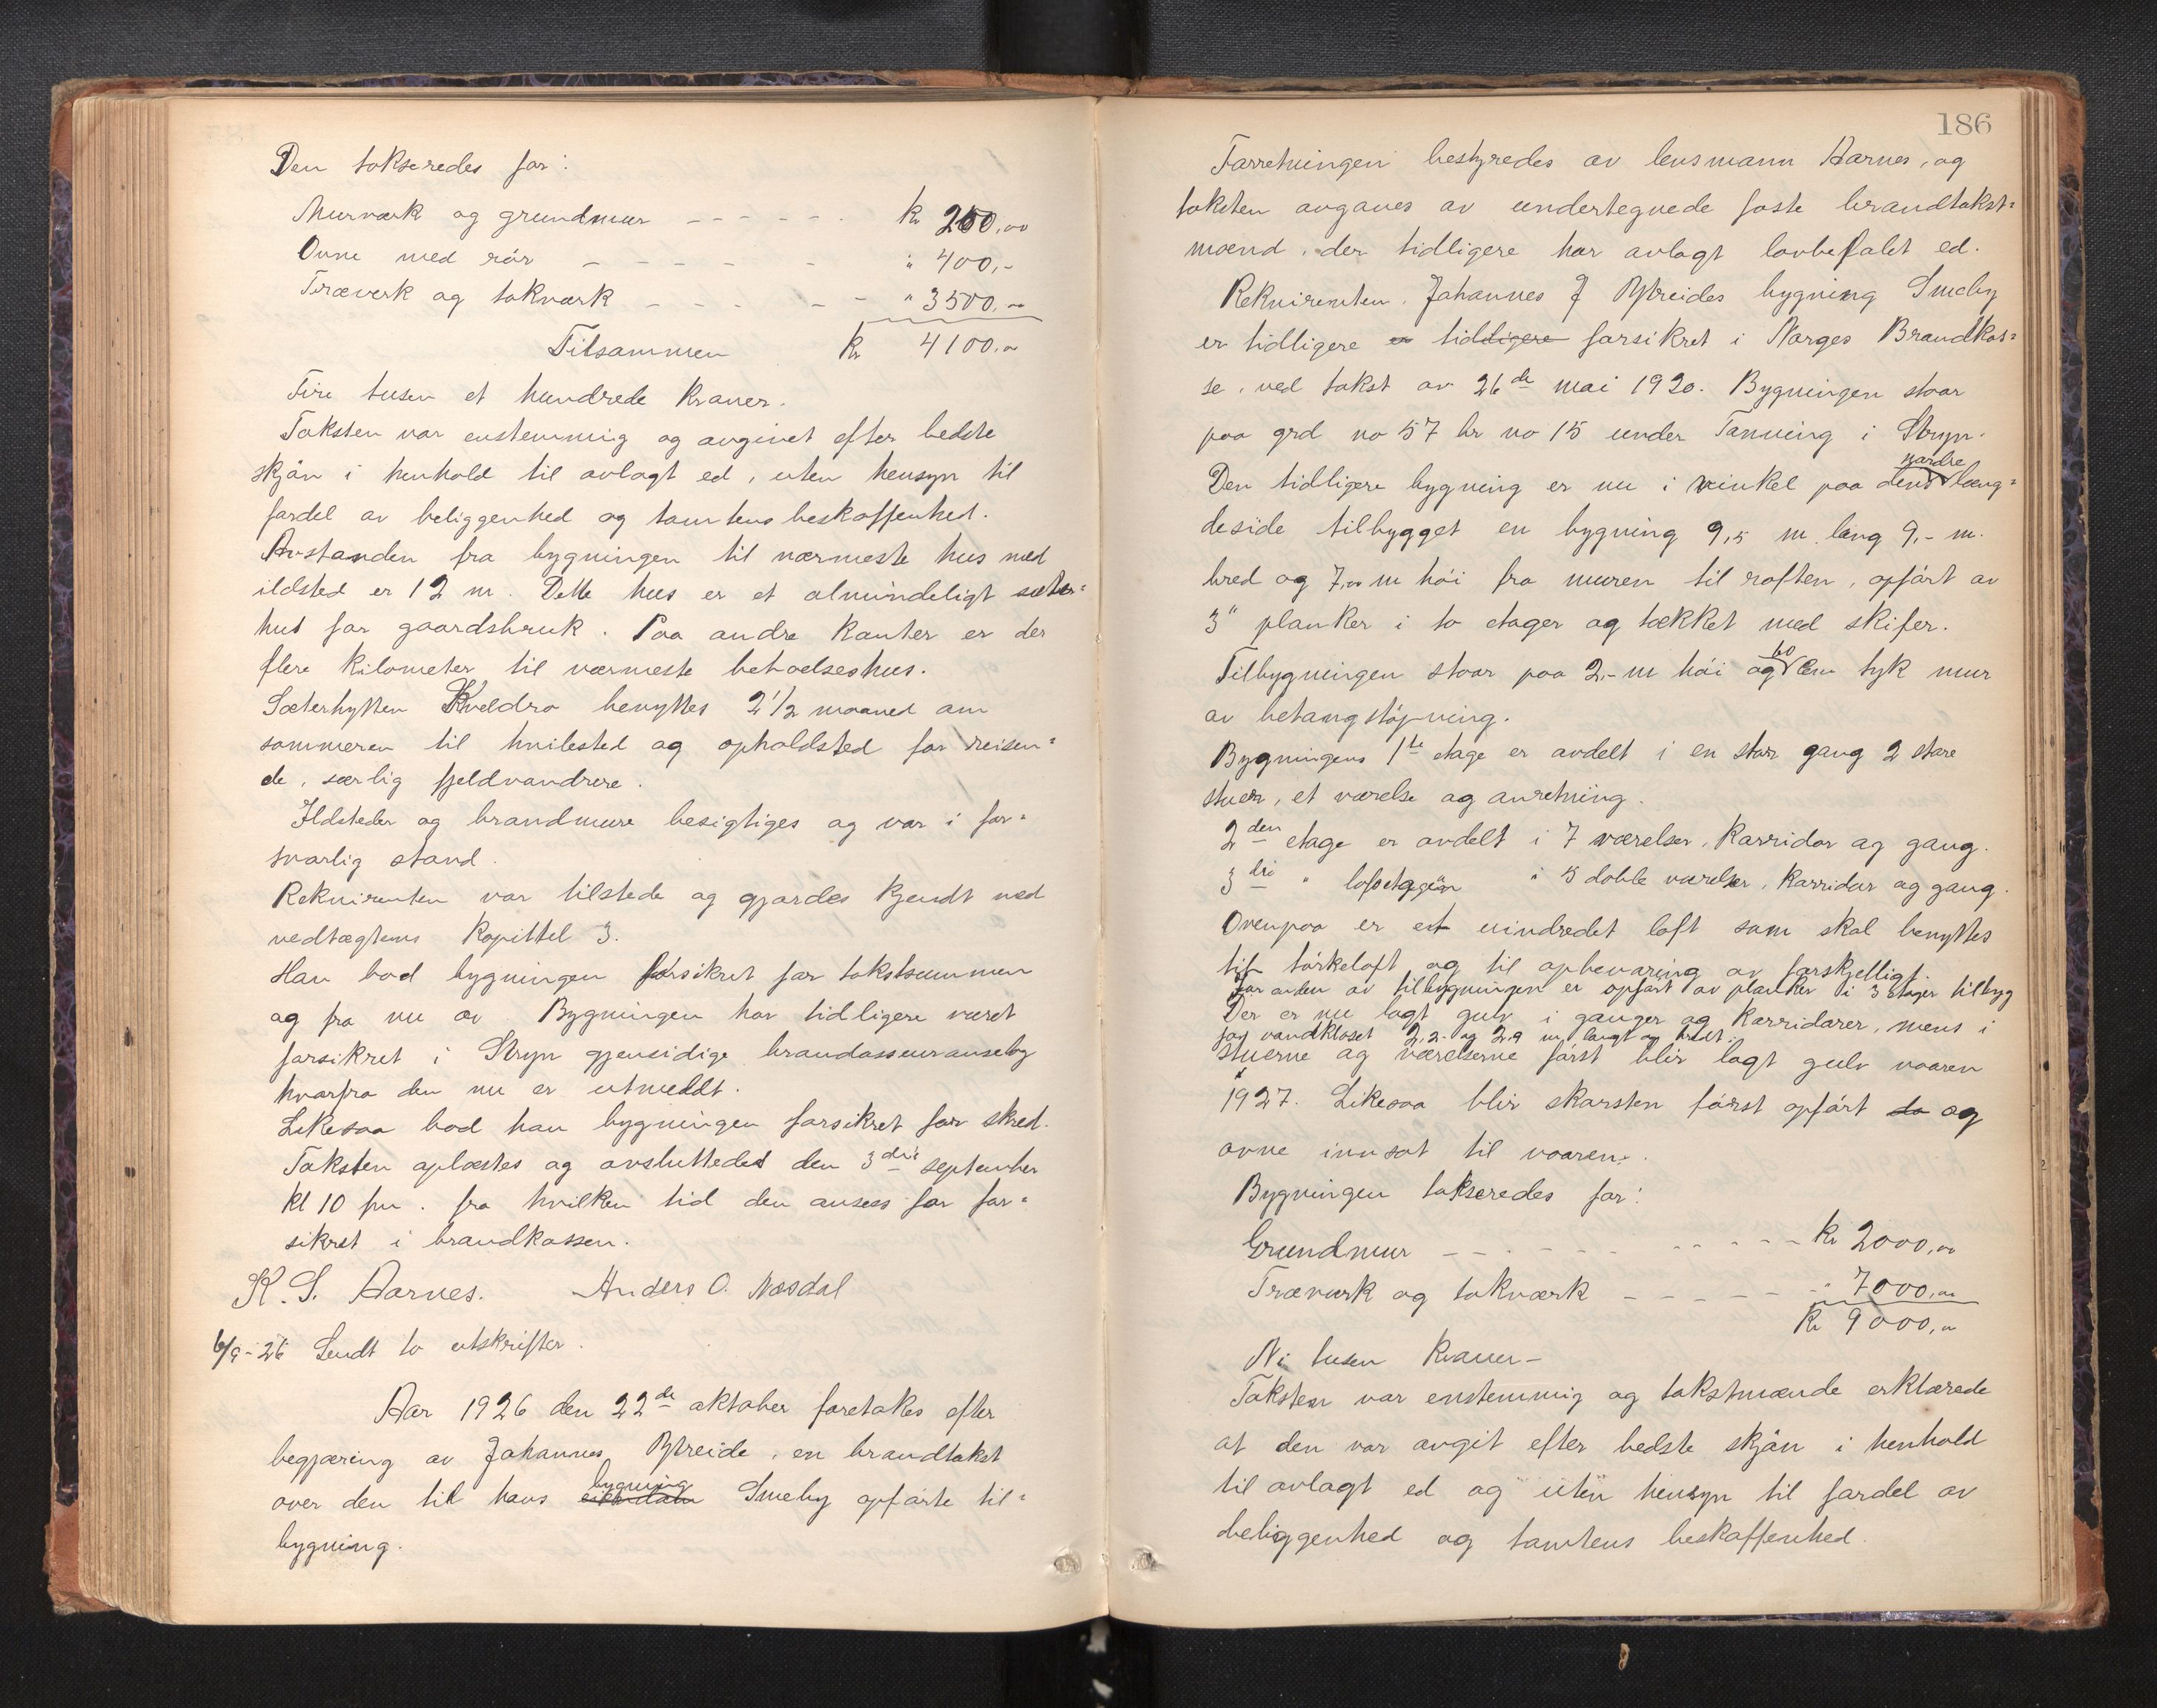 Den takseredes for:
Murværk og grundmur - - - - - - kr 200,00
Ovne med rör - - - - - - " 400,-
Træverk og takværk - - - - - " 3500,00
Tilsammen kr 4100,00
Fire tusen et hundrede kroner.
Taksten var enstemmig og avgivet efter bedste
skjön i henhold til avlagt ed, uten hensyn til
fordel av beliggenhed og tomtens beskaffenhet.
Avstanden fra bygningen til nærmeste hus med
ildsted er 12 m. Dette hus er et almindeligt sæter=
hus for gaardsbruk. Paa andre kanter er der
flere kilometer til nærmeste beboelseshus.
Sæterhytten Kveldro benyttes 2 1/2 maaned om
sommeren til hvilested og opholdsted for reisen=
de, særlig fjeldvandrere.
Ildsteder og brandmure besigtiges og var i for=
svarlig stand.
Rekvirenten var tilstede og gjordes kjendt med
vedtægtens kapittel 3.
Han bad bygningen forsikret for takstsummen
og fra nu av. Bygningen har tidligere været
forsikret i Stryn gjensidige brandassuranseby
hvorfra den nu er utmeldt.
Likesaa bad han bygningen forsikret for skred.
Taksten oplæstes og avsluttedes den 3die september
kl 10 fm. fra hvilken tid den ansees for for=
sikret i brandkassen.
K. S. Aarnes. Anders O. Næsdal
6/9-26 Sendt to utskrifter.
Aar 1926 den 22de oktober foretokes efter
begjæring av Johannes Ytreide, en brandtakst
bygning
over den til hans Smeby opförte til=
bygning.
186
Forretningen bestyredes av lensmann Aarnes, og
taksten avgaves av undertegnede faste brandtakst=
mænd, der tidligere har avlagt lovbefalet ed.
Rekvirenten, Johannes J Ytreides bygning Smeby
er tidligere er tidligere forsikret i Norges Brandkas=
se, ved takst av 26de mai 1920. Bygningen staar
paa grd no 57 br no 15 under Tonning i Stryn.
nordre
Den tidligere bygning er nu i vinkel paa dens læng=
deside tilbygget en bygning 9,5 m lang 9,- m.
bred og 7,00 m höi fra muren til raften, opfört av
3" planker i to etager og tækket med skifer.
60
Tilbygningen staar paa 2,- m höi og cm tyk mur
av betongstöpning.
Bygningens 1ste etage er avdelt i en stor gang 2 store
stuer, et værelse og anretning.
2den etage er avdelt i 7 værelser, Korridor og gang.
3die " loftsetagen " i 5 doble værelser, Korridor og gang.
Ovenpaa er et uindredet loft som skal benyttes
til törkeloft og til opbevaring av forskjelligt.
For enden av tilbygningen er opfört av planker i 3 etager tilbyg
Der er nu lagt gulv i ganger og Korridorer, mens i
for vandkloset 2,2- og 2,9 m langt og bredt.
stuerne og værelserne först blir lagt gulv vaaren
1927. Likesaa blir skorsten först opfört da og
ovne innsat til vaaren.
Bygningen takseredes for:
Grundmur - - - - - - - - - - kr 2000,00
Træverk og takværk - - - - - - " 7000,00
kr 9000,00
Ni tusen kroner-
Taksten var enstemmig og takstmænde erklærede
at den var avgit efter bedste skjön i henhold
til avlagt ed og uten hensyn til fordel av
beliggenhed og tomtens beskaffenhed.